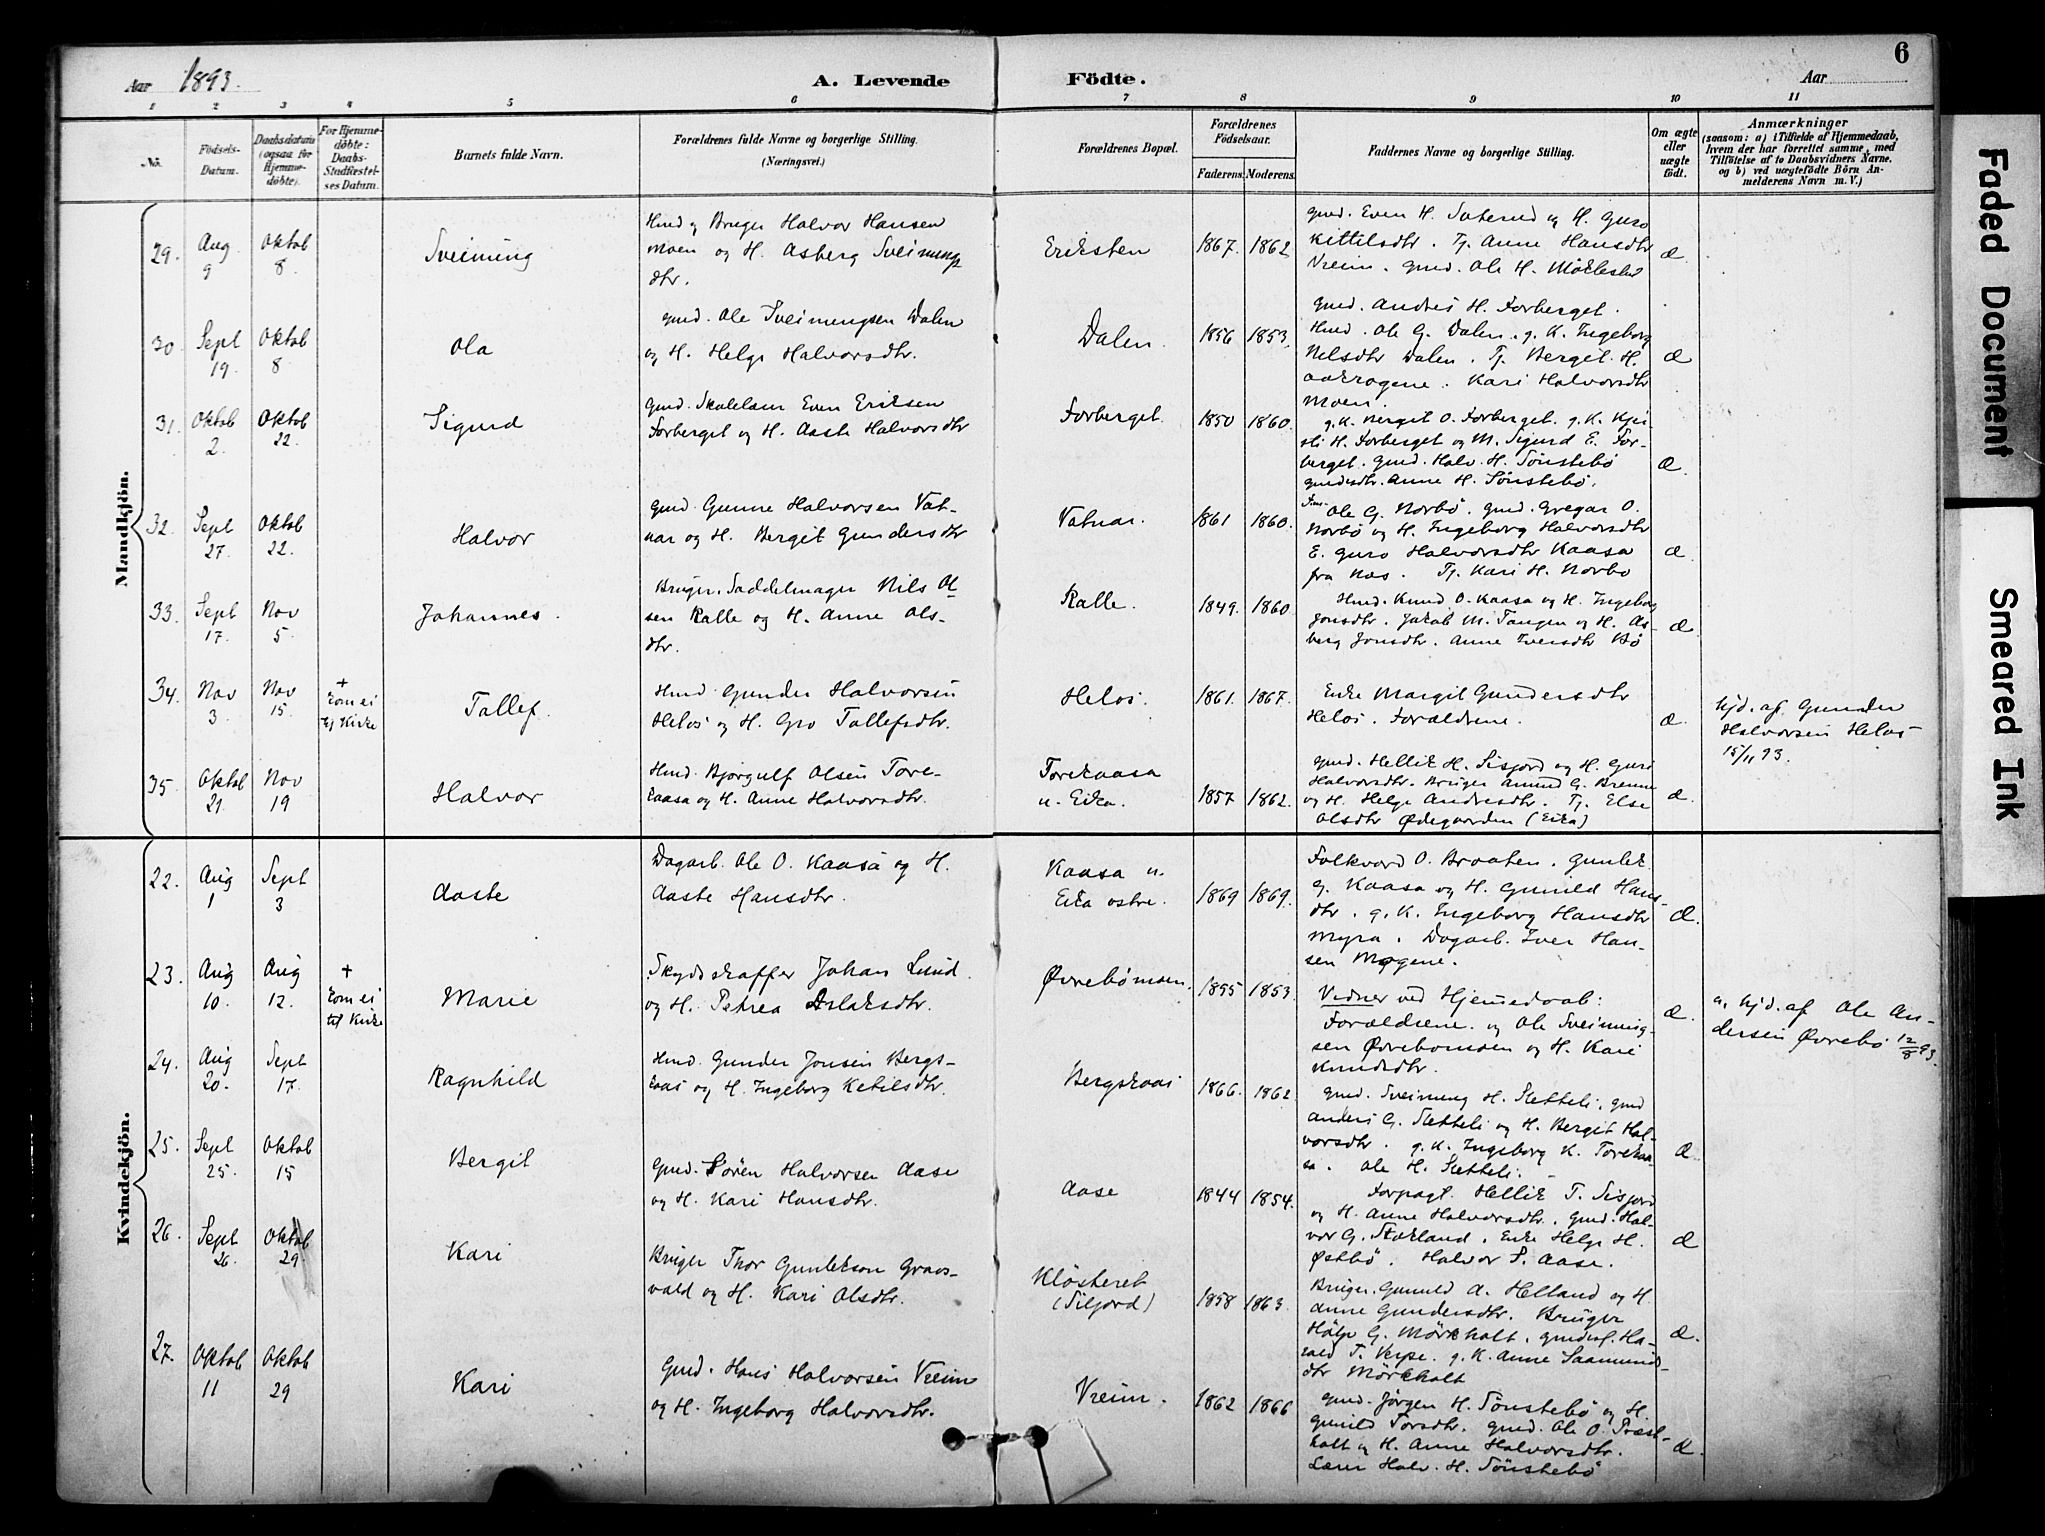 6
Aar 1893.
A. Levende Födte.
Aar
1 2 3 4 5 6 7 8 9 10 11
No.
Födsels-Datum.
Daabsdatum (ogsaa for Hjemmedöbte).
For Hjemmedöbte: Daabs-Stadfæstelses Datum.
Barnets fulde Navn.
Forældrenes fulde Navne og borgerlige Stilling.
(Næringsvei.)
Forældrenes Bopæl.
Forældrenes Födselsaar.
Faderens. Moderens.
Faddernes Navne og borgerlige Stilling.
Om ægte eller uægte födt.
Anmærkninger
(saasom: a) i Tilfælde af Hjemmedaab,
hvem der har forrettet samme, med
Tilföielse af to Daabsvidners Navne,
og b) ved uægtefödte Börn An-
melderens Navn m. V.)
Mandkjön.
29. Aug 9 Oktob 8 Sveinung
Hmd og Bruger Halvor Hansen
Moen og H. Asberg Sveinungs
dtr.
Eriksten 1867. 1862
gmd. Even H. Sæterud og H. Guro
Kittilsdtr. Tj. Anne Hansdtr
Vreim. gmd. Ole H. Möklebø
Æ.
30. Sept 19. Oktob 8 Ola
gmd. Ole Sveinungsen Dalen
og H. Helge Halvorsdtr.
Dalen. 1856 1853.
gmd. Andres H. Forberget.
Hmd. Ole G. Dalen. g. K. Ingeborg
Nelsdtr Dalen. Tj. Bergit H.
Kari Halvorsdtr
Moen.
Æ
31. Oktob 2. Oktob 22. Sigurd
gmd. Skolelærer Even Eriksen
Forberget og H. Aaste Halvorsdtr
Forberget. 1850 1860.
g. K. Bergit O. Forberget. g. K. Kjer-
sti H. Forberget og M. Sigurd E. For-
berget. gmd. Halv. H. Sönstebö
gmdsdtr. Anne H. Sönstebö.
Æ.
32. Sept 27. Oktob 22. Halvor
gmd Gunne Halvorsen Vat-
nar og H. Bergit Gundersdtr
Vatnar. 1861 1860.
Ole G. Norbö. gmd. Gregar O.
Norbö og H. Ingeborg Halvorsdtr
E. Guro Halvorsdtr Kaasa
fra Næs. Tj. Kari H. Norbö
Æ
33. Sept 17. Nov 5. Johannes.
Bruger. Saddelmager Nils Ol
sen Kalle og H. Anne Ols-
dtr.
Kalle. 1849. 1860
Hmd. Knud O. Kaasa og H. Ingeborg
Jonsdtr. Jakob M. Tangen og H. As-
berg Jonsdtr. Anne Iversdtr Bö
Æ.
34. Nov 3. Nov 15. + kom ei tj Kirke Tallef.
Hmd. Gunder Halvorsen
Helos og H. Gro Tallefsdtr.
Helos. 1861. 1867.
Enke Margit Gundersdtr
Helos. Forældrene.
Æ.
hjd. af Gunder
Halvorsen Helos
15/11 93.
35. Oktob 21. Nov 19 Halvor
Hmd. Bjørgulf Olsen Tore-
kaasa og H. Anne Halvorsdtr.
Torekaasa
u. Eika. 1857 1862.
gmd. Hellik H. Sisjord og H. Guri
Halvorsdtr. Bruger Amund G. Brenne
og H. Helge Andresdtr. Tj. Else
Olsdtr Ødegaarden (Eika)
Æ.
Kvindekjön.
22. Aug 1 Sept 3 Aaste
Dagarb. Ole O. Kaasa og H.
Aaste Hansdtr.
Kaasa u.
Eika østre. 1869 1869.
Folkvord O. Braaten. Gunlek
G. Kaasa og H. Gunild Hans-
dtr. g. K. Ingeborg Hansdtr
Myra. Dagarb. Iver Han-
sen Møgene.
Æ.
23. Aug 10. Aug 12. + kom ei til Kirke Marie
Skydsskaffer Johan Lund.
og H. Petrea Aslaksdtr.
Øvrebømoen. 1855 1853
Vidner ved Hjemedaab:
Forældrene. og Ole Sveinung-
sen Øvrebomoen og H. Kari
Knudsdtr.
Æ.
a, hjd. af Ole An-
dersen Øvrebø 12/8 93.
24. Aug 20. Sept 17. Ragnhild
Hmd. Gunder Jonsen Bergs-
kaas og H. Ingeborg Ketilsdtr.
Bergskaas 1866. 1862
gmd. Sveinung H. Sletteli. gmd
Anders G. Sletteli og H. Bergit Hal-
vorsdtr. g. K. Ingeborg K. Torekaa-
sa. Ole H. Sletteli.
Æ
25. Sept 25. Oktob 15 Bergit
Gmd. Sören Halvorsen Aase
og H. Kari Hansdtr.
Aase 1844 1854.
Forpagt. Hellik T. Sisjord
og H. Anne Halvorsdtr. Gmd. Hal-
vor G. Stokland. Enke Helge H.
Østbö. Halvor S. Aase.
Æ
26. Sept 26. Oktob 29 Kari
Bruger Thor Gunlekson Graos-
vald og H. Kari Olsdtr.
Klösteret
(Siljord) 1858 1863.
Bruger. Gunuld A. Helland og H.
Anne Gundersdtr. Bruger
Hölje G. Mörkholt. gmdsøf. Ha-
rald T. Verpe. g. K. Anne Saamunds-
dtr Mörkholt
Æ.
27. Oktob 11 Oktob 29 Kari
Gmd. Hans Halvorsen Vreim
og H. Ingeborg Halvorsdtr.
Vreim. 1862 1866
gmd. Jørgen H. Sönstebö og H.
Gunild Torsdtr. gmd. Ole O. Præst-
holt og H. Anne Halvorsdtr.
Lærer Halv. H. Sönstebö
Æ.
Faded Document
Smeared Ink